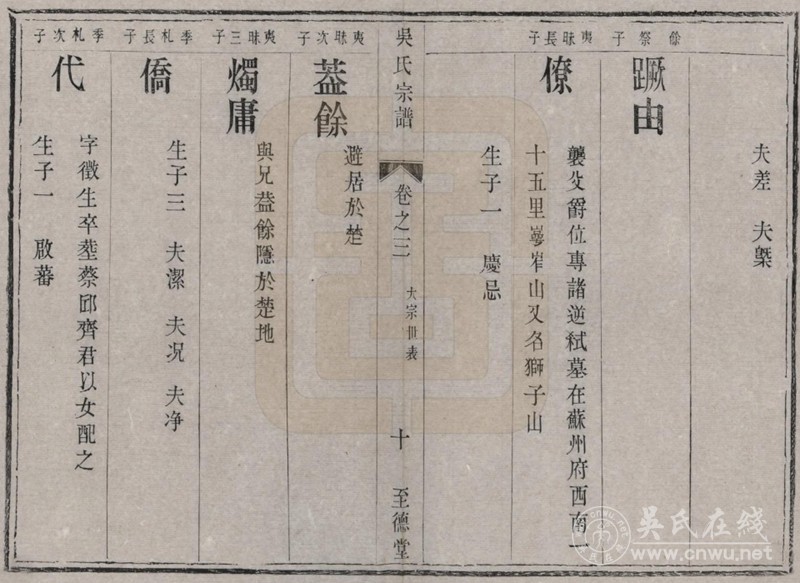 夫差 夫槩
餘祭子
蹶由
夷昧長子
僚
襲父爵位專諸逆弒墓在蘇州府西南一
十五里岝崿山又名獅子山
生子一 慶忌
吳氏宗譜
卷之三
大宗世表
十
至德堂
夷昧次子
葢餘
避居於楚
夷昧三子
燭庸
與兄葢餘隱於楚地
季札長子
僑
生子三 夫潔 夫况 夫净
季札次子
代
字徵生卒塟蔡邱齊君以女配之
生子一 啟蕃
吳氏在线
www.cnwu.net